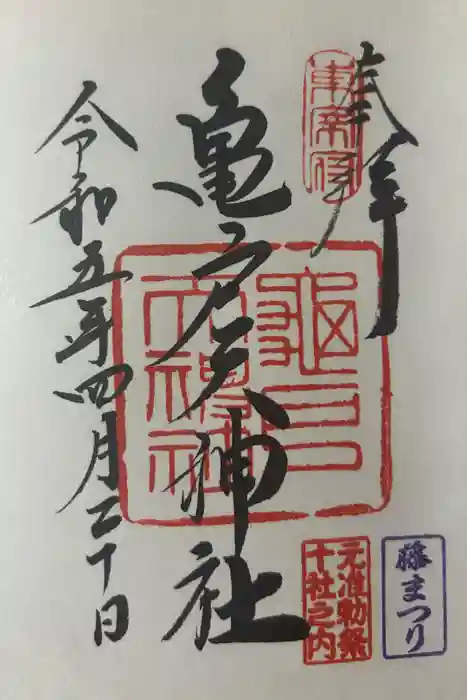 奉拝
東宰府
亀戸天神社
龜戸
天神社
令和五年四月二十日
元准勅祭
十社之内
藤まつり